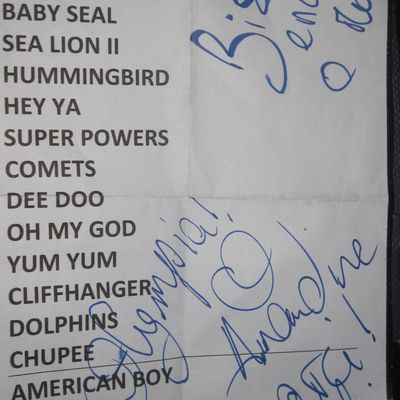 BABY SEAL
SEA LION II
HUMMINGBIRD
HEY YA
SUPER POWERS
COMETS
DEE DOO
OH MY GOD
YUM YUM
CLIFFHANGER
DOLPHINS
CHUPEE
AMERICAN BOY
Olympia!